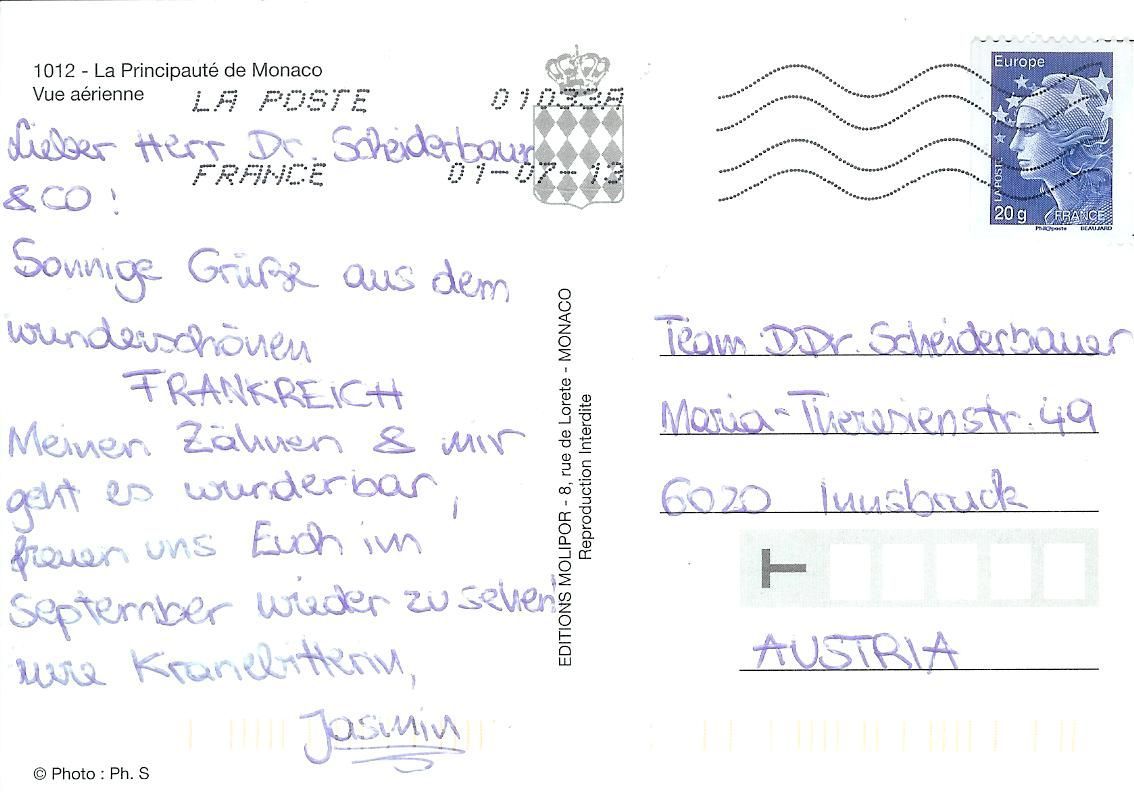 1012 - La Principauté de Monaco
Vue aérienne
LA POSTE 01033A
FRANCE 01-07-13
Lieber Herr Dr. Scheiderbauer
& CO !
Sonnige Grüße aus dem
wunderschönen
FRANKREICH
Meinen Zähnen & mir
geht es wunderbar,
freuen uns Euch im
September wieder zu sehen!
Eure Kranebitterin,
Jasmin
© Photo : Ph. S
EDITIONS MOLIPOR - 8, rue de Lorete - MONACO
Reproduction Interdite
Europe
LA POSTE
20 g FRANCE
Phil@poste BEAUJARD
Team DDr. Scheiderbauer
Maria-Theresienstr. 49
6020 Innsbruck
T
AUSTRIA